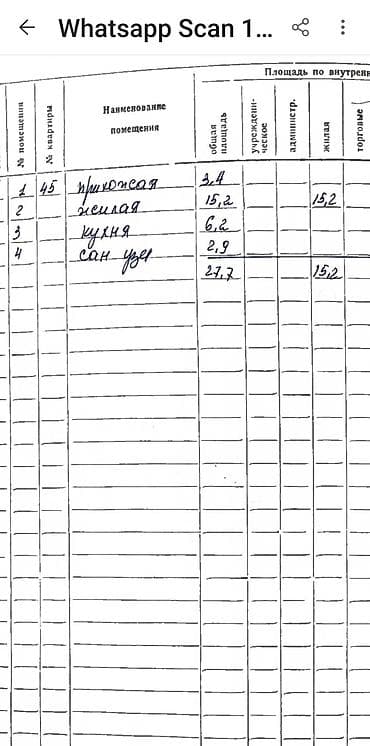 Whatsapp Scan 1...
Площадь по внутрен
№ помещения
№ квартиры
Наименование
помещения
общая
площадь
учрежденч-
ческое
администр.
жилая
торговые
1 45 прихожая 3,4
2 жилая 15,2 15,2
3 кухня 6,2
4 сан узел 2,9
27,7 15,2